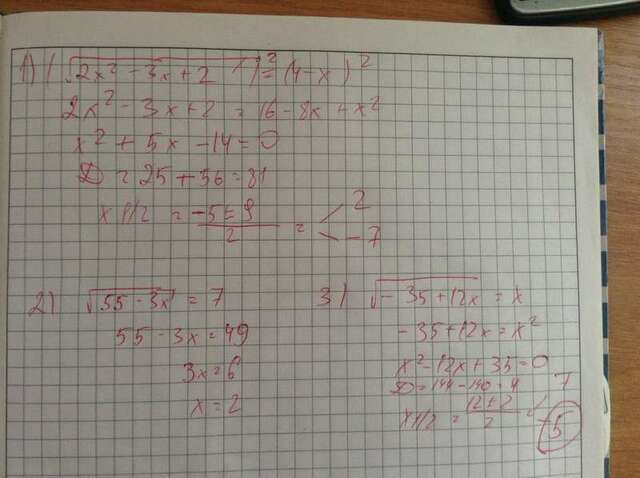 1) (√(2x² - 3x + 2))² = (4 - x)²
2x² - 3x + 2 = 16 - 8x + x²
x² + 5x - 14 = 0
D = 25 + 56 = 81
x1/2 = (-5 ± 9)/2 = < 2
- 7
2) √(55 - 3x) = 7
55 - 3x = 49
3x = 6
x = 2
3) √(-35 + 12x) = x
-35 + 12x = x²
x² - 12x + 35 = 0
D = 144 - 140 = 4
x1/2 = (12 ± 2)/2 = < 7
5